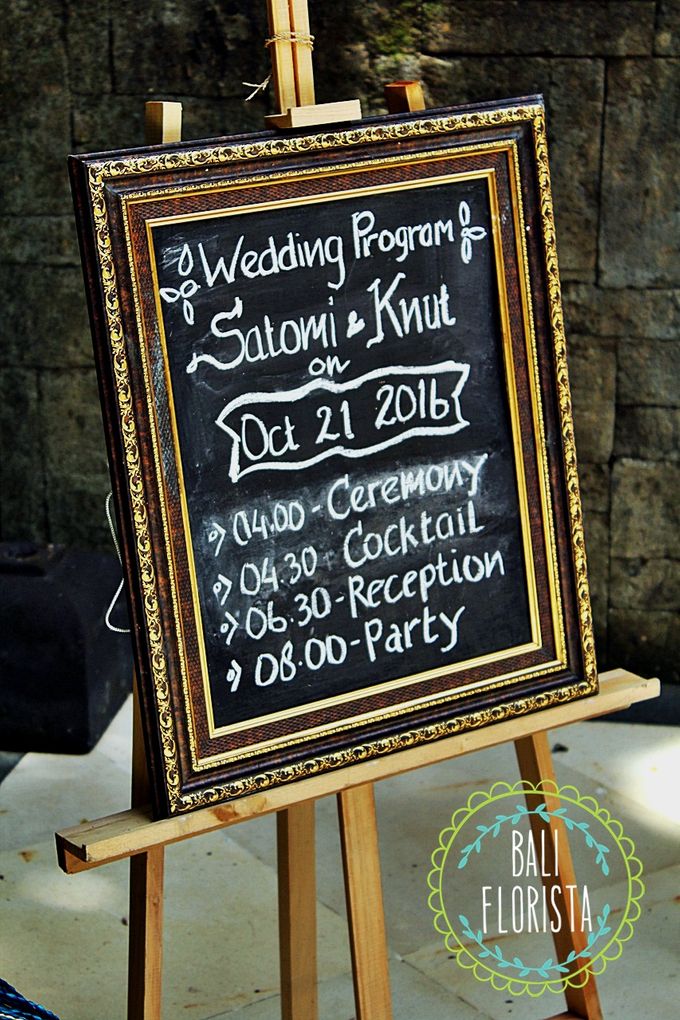 Wedding Program
Satomi & Knut
on
Oct 21 2016
04.00 - Ceremony
04.30 - Cocktail
06.30 - Reception
08.00 - Party
BALI
FLORISTA